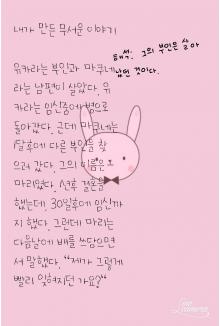 내가 만든 무서운 이야기
해석: 그의 부인은 살아
났던 것이다.
유카라는 부인과 마쿠네
라는 남편이 살았다. 유
카라는 임신중에 병으로
돌아갔다. 근데 마쿠네는
1달후에 다른 부인을 찾
으러 갔다. 그의 이름은
마리였다. 산후 결혼을
했는데. 30일후에 임신까
지 했다. 그런데 마리는
다음날에 배를 쓰담으면
서 말했다. “제가 그렇게
빨리 잊혀지던 가요?”